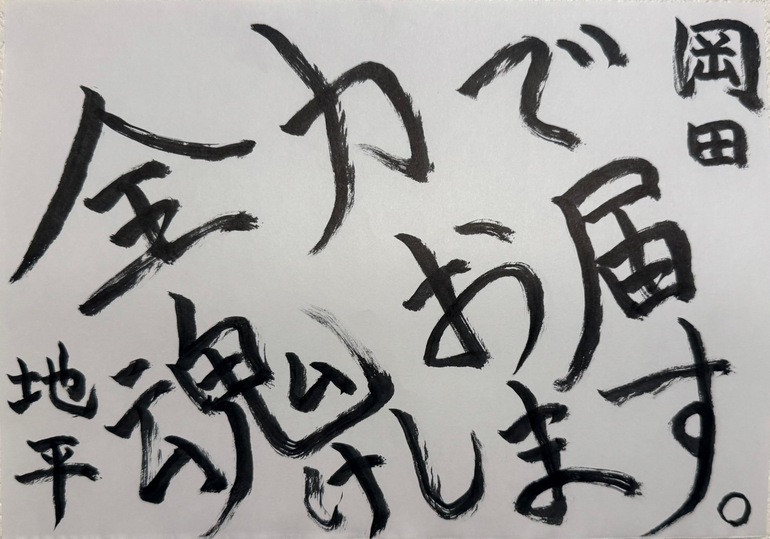 岡田
全力で
魂お届
けします。
地平